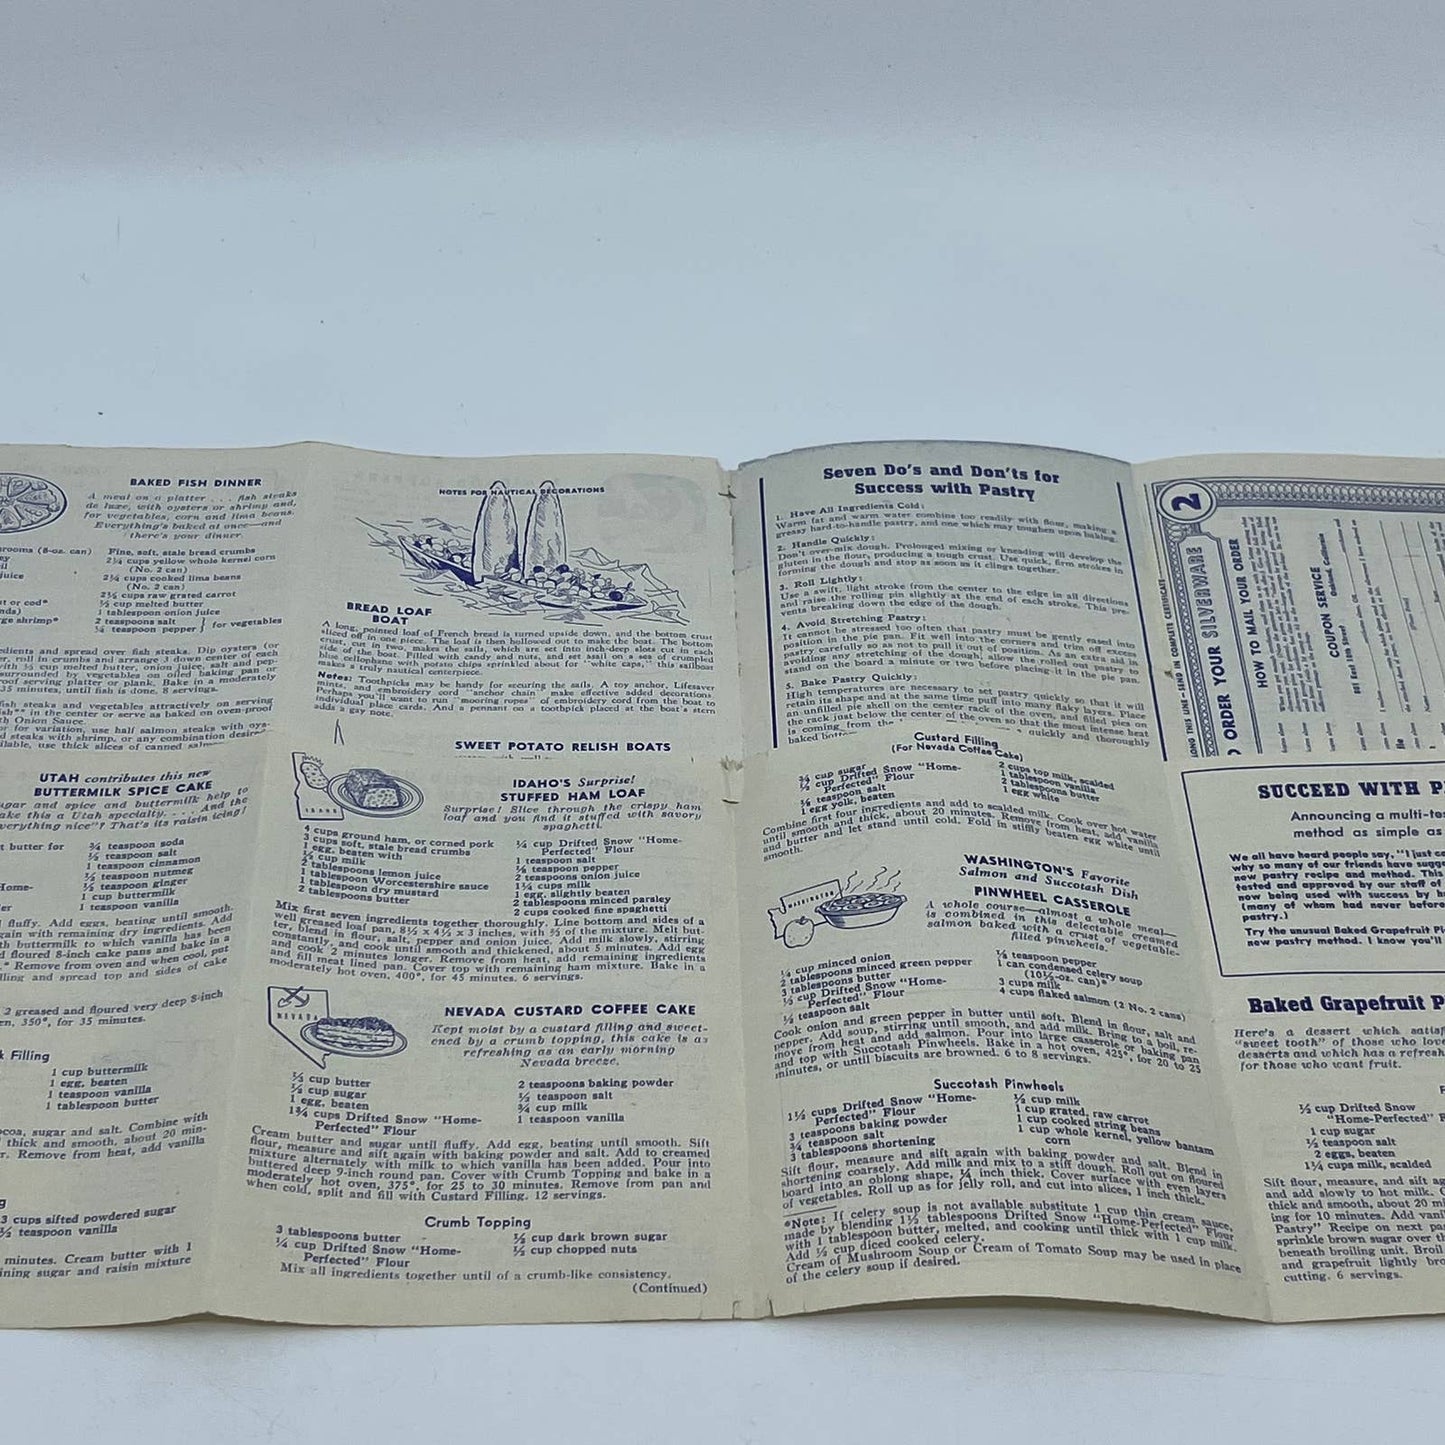 BAKED FISH DINNER
A meal on a platter . . . fish steaks
de luxe, with oysters or shrimp and,
for vegetables, corn and lima beans.
Everything's baked at once—and
there's your dinner.
rooms (8-oz. can)
juice
ut or cod*
rge shrimp*
Fine, soft, stale bread crumbs
2¼ cups yellow whole kernel corn
(No. 2 can)
2¼ cups cooked lima beans
(No. 2 can)
2½ cups raw grated carrot
⅓ cup melted butter
1 tablespoon onion juice
2 teaspoons salt
¼ teaspoon pepper } for vegetables
edients and spread over fish steaks. Dip oysters (or
er, roll in crumbs and arrange 3 down center of each
with ⅓ cup melted butter, onion juice, salt and pep-
surrounded by vegetables on oiled baking pan or
proof serving platter or plank. Bake in a moderately
35 minutes, until fish is done. 8 servings.
fish steaks and vegetables attractively on serving
ish** in the center or serve as baked on oven-proof
th Onion Sauce.
or for variation, use half salmon steaks with oys-
d steaks with shrimp, or any combination desired
ilable, use thick slices of canned
UTAH contributes this new
BUTTERMILK SPICE CAKE
ugar and spice and buttermilk help to
ake this a Utah specialty. . . . And the
verything nice"? That's its raisin icing!
t butter for
Home-
¾ teaspoon soda
½ teaspoon salt
1 teaspoon cinnamon
½ teaspoon nutmeg
½ teaspoon ginger
1 cup buttermilk
1 teaspoon vanilla
l fluffy. Add eggs, beating until smooth.
gain with remaining dry ingredients. Add
th buttermilk to which vanilla has been
d floured 8-inch cake pans and bake in a
* Remove from oven and when cool, put
lling and spread top and sides of cake
2 greased and floured very deep 8-inch
en, 350°, for 35 minutes.
k Filling
1 cup buttermilk
1 egg, beaten
1 teaspoon vanilla
1 tablespoon butter
ocoa, sugar and salt. Combine with
thick and smooth, about 20 min-
r. Remove from heat, add vanilla
3 cups sifted powdered sugar
½ teaspoon vanilla
minutes. Cream butter with 1
ining sugar and raisin mixture
NOTES FOR NAUTICAL DECORATIONS
BREAD LOAF
BOAT
A long, pointed loaf of French bread is turned upside down, and the bottom crust
sliced off in one piece. The loaf is then hollowed out to make the boat. The bottom
crust, cut in two, makes the sails, which are set into inch-deep slots cut in each
side of the boat. Filled with candy and nuts, and set asail on a sea of crumpled
blue cellophane with potato chips sprinkled about for "white caps," this sailboat
makes a truly nautical centerpiece.
Notes: Toothpicks may be handy for securing the sails. A toy anchor, Lifesaver
mints, and embroidery cord "anchor chain" make effective added decorations
Perhaps you'll want to run "mooring ropes" of embroidery cord from the boat to
individual place cards. And a pennant on a toothpick placed at the boat's stern
adds a gay note.
SWEET POTATO RELISH BOATS
IDAHO
IDAHO'S Surprise!
STUFFED HAM LOAF
Surprise! Slice through the crispy ham
loaf and you find it stuffed with savory
spaghetti.
4 cups ground ham, or corned pork
3 cups soft, stale bread crumbs
1 egg, beaten with
½ cup milk
2 tablespoons lemon juice
1 tablespoon Worcestershire sauce
1 tablespoon dry mustard
2 tablespoons butter
¼ cup Drifted Snow "Home-
Perfected" Flour
1 teaspoon salt
⅛ teaspoon pepper
2 teaspoons onion juice
1¼ cups milk
1 egg, slightly beaten
2 tablespoons minced parsley
2 cups cooked fine spaghetti
Mix first seven ingredients together thoroughly. Line bottom and sides of a
well greased loaf pan, 8½ x 4½ x 3 inches, with ⅔ of the mixture. Melt but-
ter, blend in flour, salt, pepper and onion juice. Add milk slowly, stirring
constantly, and cook until smooth and thickened, about 5 minutes. Add egg
and cook 2 minutes longer. Remove from heat, add remaining ingredients
and fill meat lined pan. Cover top with remaining ham mixture. Bake in a
moderately hot oven, 400°, for 45 minutes. 6 servings.
NEVADA
NEVADA CUSTARD COFFEE CAKE
Kept moist by a custard filling and sweet-
ened by a crumb topping, this cake is as
refreshing as an early morning
Nevada breeze.
⅓ cup butter
½ cup sugar
1 egg, beaten
1¾ cups Drifted Snow "Home-
Perfected" Flour
2 teaspoons baking powder
½ teaspoon salt
¾ cup milk
1 teaspoon vanilla
Cream butter and sugar until fluffy. Add egg, beating until smooth. Sift
flour, measure and sift again with baking powder and salt. Add to creamed
mixture alternately with milk to which vanilla has been added. Pour into
buttered deep 9-inch round pan. Cover with Crumb Topping and bake in a
moderately hot oven, 375°, for 25 to 30 minutes. Remove from pan and
when cold, split and fill with Custard Filling. 12 servings.
Crumb Topping
3 tablespoons butter
¼ cup Drifted Snow "Home-
Perfected" Flour
⅓ cup dark brown sugar
½ cup chopped nuts
Mix all ingredients together until of a crumb-like consistency.
(Continued)
Seven Do's and Don'ts for
Success with Pastry
1. Have All Ingredients Cold:
Warm fat and warm water combine too readily with flour, making a
greasy hard-to-handle pastry, and one which may toughen upon baking.
2. Handle Quickly:
Don't over-mix dough. Prolonged mixing or kneading will develop the
gluten in the flour, producing a tough crust. Use quick, firm strokes in
forming the dough and stop as soon as it clings together.
3. Roll Lightly:
Use a swift, light stroke from the center to the edge in all directions
and raise the rolling pin slightly at the end of each stroke. This pre-
vents breaking down the edge of the dough.
4. Avoid Stretching Pastry:
It cannot be stressed too often that pastry must be gently eased into
position in the pie pan. Fit well into the corners and trim off excess
pastry carefully so as not to pull it out of position. As an extra aid in
avoiding any stretching of the dough, allow the rolled out pastry to
stand on the board a minute or two before placing it in the pie pan.
5. Bake Pastry Quickly:
High temperatures are necessary to set pastry quickly, so that it will
retain its shape and at the same time puff into many flaky layers. Place
an unfilled pie shell on the center rack of the oven, and filled pies on
the rack just below the center of the oven so the most intense heat
is coming from the quickly and thoroughly
baked bottom
Custard Filling
(For Nevada Coffee Cake)
¾ cup sugar
⅓ cup Drifted Snow "Home-
Perfected" Flour
⅛ teaspoon salt
1 egg yolk, beaten
2 cups top milk, scalded
1 tablespoon vanilla
2 tablespoons butter
1 egg white
Combine first four ingredients and add to scalded milk. Cook over hot water
until smooth and thick, about 20 minutes. Remove from heat, add vanilla
and butter and let stand until cold. Fold in stiffly beaten egg white until
smooth.
WASHINGTON
WASHINGTON'S Favorite
Salmon and Succotash Dish
PINWHEEL CASSEROLE
A whole course—almost a whole meal—
is combined in this delectable creamed
salmon baked with a crust of vegetable-
filled pinwheels.
¼ cup minced onion
2 tablespoons minced green pepper
3 tablespoons butter
⅓ cup Drifted Snow "Home-
Perfected" Flour
½ teaspoon salt
⅛ teaspoon pepper
1 can condensed celery soup
(10½-oz. can)*
3 cups milk
4 cups flaked salmon (2 No. 2 cans)
Cook onion and green pepper in butter until soft. Blend in flour, salt and
pepper. Add soup, stirring until smooth, and add milk. Bring to a boil, re-
move from heat and add salmon. Pour into large casserole or baking pan
and top with Succotash Pinwheels. Bake in a hot oven, 425°, for 20 to 25
minutes, or until biscuits are browned. 6 to 8 servings.
Succotash Pinwheels
1½ cups Drifted Snow "Home-
Perfected" Flour
3 teaspoons baking powder
¾ teaspoon salt
3 tablespoons shortening
½ cup milk
1 cup grated, raw carrot
1 cup cooked string beans
1 cup whole kernel, yellow bantam
corn
Sift flour, measure and sift again with baking powder and salt. Blend in
shortening coarsely. Add milk and mix to a stiff dough. Roll out on floured
board into an oblong shape, ¼ inch thick. Cover surface with even layers
of vegetables. Roll up as for jelly roll, and cut into slices, 1 inch thick.
*Note: If celery soup is not available substitute 1 cup thin cream sauce,
made by blending 1½ tablespoons Drifted Snow "Home-Perfected" Flour
with 1 tablespoon butter, melted, and cooking until thick with 1 cup milk.
Add ½ cup diced cooked celery.
Cream of Mushroom Soup or Cream of Tomato Soup may be used in place
of the celery soup if desired.
2
LONG THIS LINE—SEND IN COMPLETE CERTIFICATE
O ORDER YOUR SILVERWARE
HOW TO MAIL YOUR ORDER
COUPON SERVICE
857 East 18th Street
Oakland, California
SUCCEED WITH P
Announcing a multi-te
method as simple as
We all have heard people say, "I just ca
why so many of our friends have sugge
new pastry recipe and method. This
tested and approved by our staff of
now being used with success by h
(many of whom had never before
pastry.)
Try the unusual Baked Grapefruit Pi
new pastry method. I know you'll
Baked Grapefruit P
Here's a dessert which satisf
"sweet tooth" of those who lov
desserts and which has a refresh
for those who want fruit.
⅓ cup Drifted Snow
"Home-Perfected" Flour
1 cup sugar
½ teaspoon salt
2 eggs, beaten
1¾ cups milk, scalded
Sift flour, measure, and sift aga
and add slowly to hot milk. C
thick and smooth, about 20 mi
ing for 10 minutes. Add vani
Pastry" Recipe on next pa
sprinkle brown sugar over th
beneath broiling unit. Broil
and grapefruit lightly bro
cutting. 6 servings.